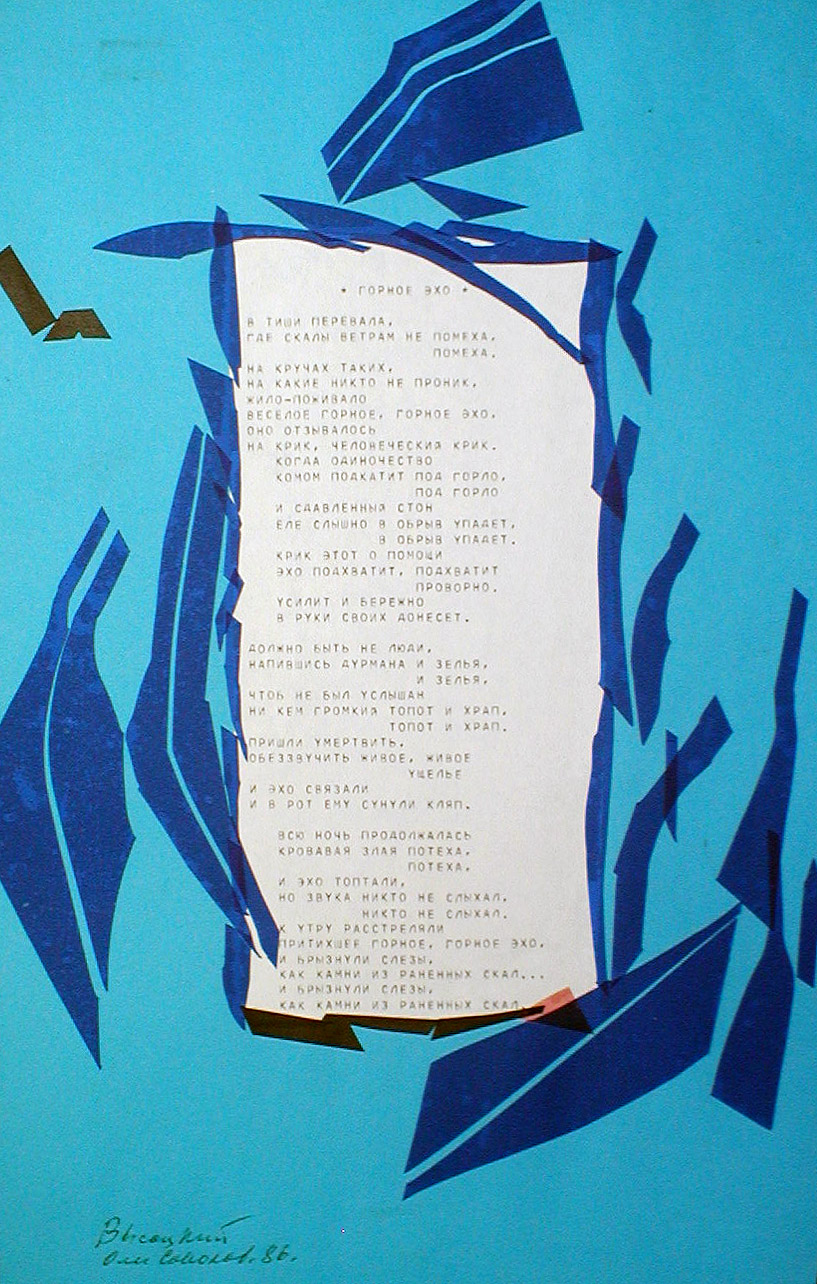 * ГОРНОЕ ЭХО *
В ТИШИ ПЕРЕВАЛА,
ГДЕ СКАЛЫ ВЕТРАМ НЕ ПОМЕХА,
ПОМЕХА.
НА КРУЧАХ ТАКИХ,
НА КАКИЕ НИКТО НЕ ПРОНИК,
ЖИЛО-ПОЖИВАЛО
ВЕСЕЛОЕ ГОРНОЕ, ГОРНОЕ ЭХО,
ОНО ОТЗЫВАЛОСЬ
НА КРИК, ЧЕЛОВЕЧЕСКИЙ КРИК.
КОГДА ОДИНОЧЕСТВО
КОМОМ ПОДКАТИТ ПОД ГОРЛО,
ПОД ГОРЛО
И СДАВЛЕННЫЙ СТОН
ЕЛЕ СЛЫШНО В ОБРЫВ УПАДЕТ,
В ОБРЫВ УПАДЕТ.
КРИК ЭТОТ О ПОМОЩИ
ЭХО ПОДХВАТИТ, ПОДХВАТИТ
ПРОВОРНО.
УСИЛИТ И БЕРЕЖНО
В РУКИ СВОИХ ДОНЕСЕТ.
ДОЛЖНО БЫТЬ НЕ ЛЮДИ,
НАПИВШИСЬ ДУРМАНА И ЗЕЛЬЯ,
И ЗЕЛЬЯ,
ЧТОБ НЕ БЫЛ УСЛЫШАН
НИ КЕМ ГРОМКИЙ ТОПОТ И ХРАП,
ТОПОТ И ХРАП.
ПРИШЛИ УМЕРТВИТЬ,
ОБЕЗЗВУЧИТЬ ЖИВОЕ, ЖИВОЕ
УЩЕЛЬЕ
И ЭХО СВЯЗАЛИ
И В РОТ ЕМУ СУНУЛИ КЛЯП.
ВСЮ НОЧЬ ПРОДОЛЖАЛАСЬ
КРОВАВАЯ ЗЛАЯ ПОТЕХА,
ПОТЕХА,
И ЭХО ТОПТАЛИ,
НО ЗВУКА НИКТО НЕ СЛЫХАЛ,
НИКТО НЕ СЛЫХАЛ.
К УТРУ РАССТРЕЛЯЛИ
ПРИТИХШЕЕ ГОРНОЕ, ГОРНОЕ ЭХО,
И БРЫЗНУЛИ СЛЕЗЫ,
КАК КАМНИ ИЗ РАНЕННЫХ СКАЛ...
И БРЫЗНУЛИ СЛЕЗЫ,
КАК КАМНИ ИЗ РАНЕННЫХ СКАЛ.
Высоцкий
Олм Соколов. 86.